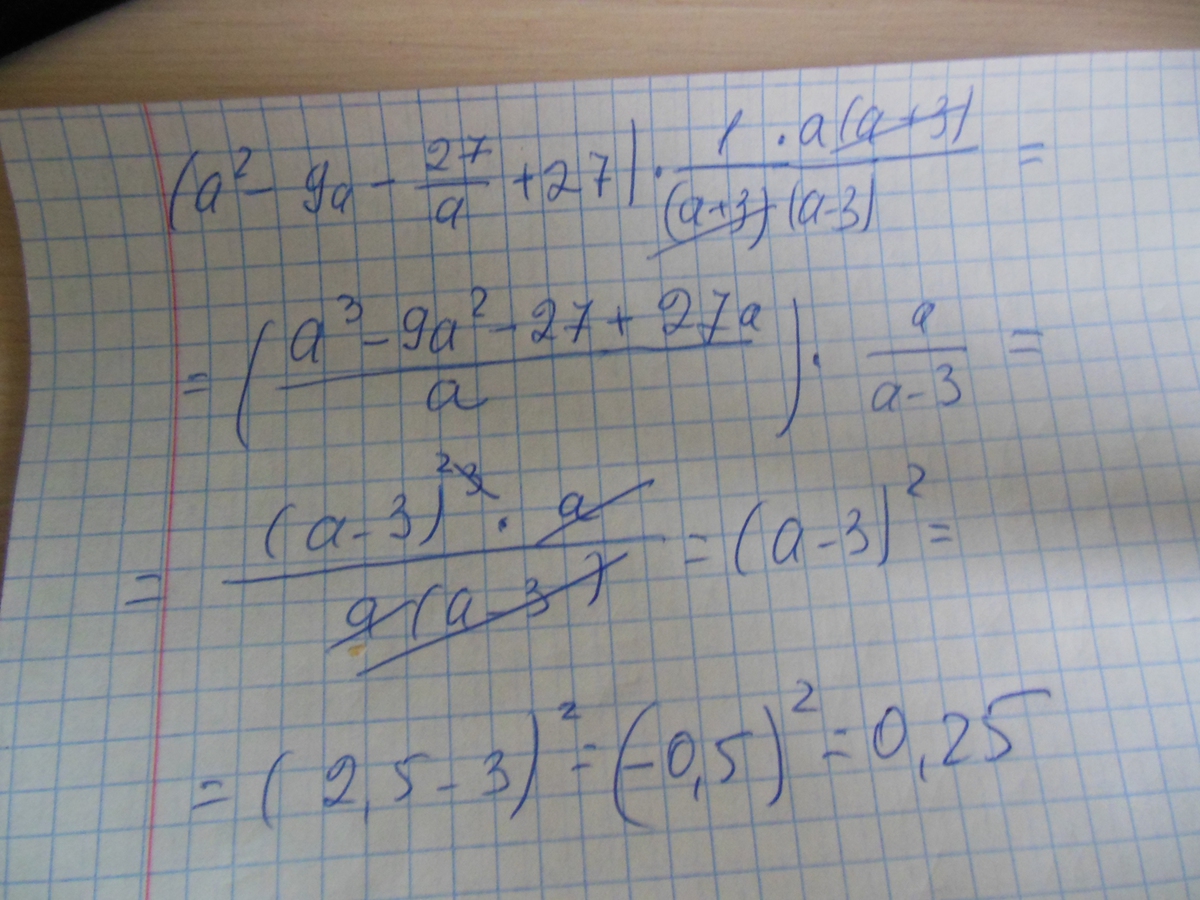 (a² - 9a - 27/a + 27) · 1 · a(a+3) / (a+3)(a-3) =
= (a³ - 9a² - 27 + 27a / a) · a / a-3 =
= (a-3)² ³ · a / a(a-3) = (a-3)² =
= (2,5 - 3)² = (-0,5)² = 0,25